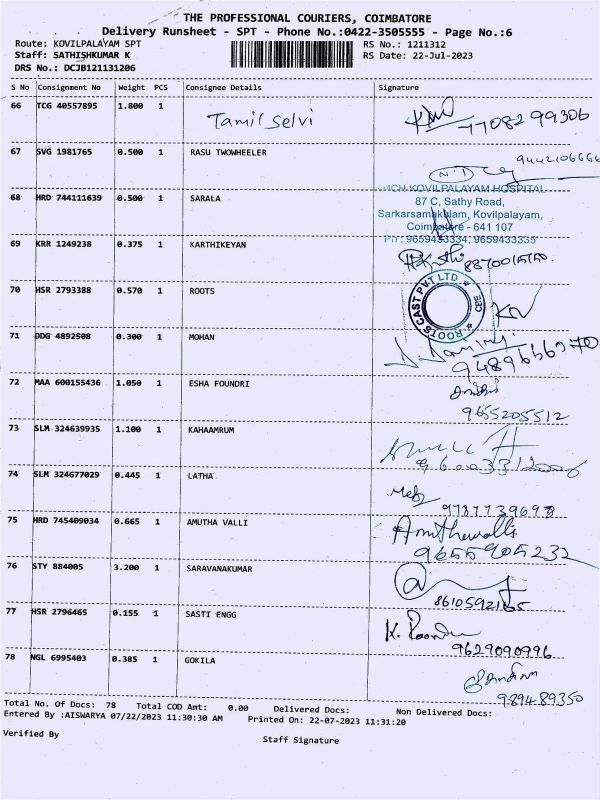 THE PROFESSIONAL COURIERS, COIMBATORE
Delivery Runsheet - SPT - Phone No.:0422-3505555 - Page No.:6
Route: KOVILPALAYAM SPT RS No.: 1211312
Staff: SATHISHKUMAR K RS Date: 22-Jul-2023
DRS No.: DCJB121131206
S No Consignment No Weight PCS Consignee Details Signature
66 TCG 40557895 1.800 1 Tamil selvi 7708299306
67 SVG 1981765 0.500 1 RASU TWOWHEELER
9442106666
KOVILPALAYAM HOSPITAL
68 HRD 744111639 0.500 1 SARALA 87 C, Sathy Road,
Sarkarsamakulam, Kovilpalayam,
Coimbatore - 641 107
69 KRR 1249238 0.375 1 KARTHIKEYAN Ph : 9659433334, 9659433335
70 HSR 2793388 0.570 1 ROOTS ROOTS CAST PVT LTD CBE
71 DDG 4892508 0.300 1 MOHAN
72 MAA 600155436 1.050 1 ESHA FOUNDRI
9655205512
73 SLM 324639935 1.100 1 KAHAAMRUM
74 SLM 324677029 0.445 1 LATHA
75 HRD 745409034 0.665 1 AMUTHA VALLI Amithavalli
9655905232
76 STY 884005 3.200 1 SARAVANAKUMAR
77 HSR 2796465 0.155 1 SASTI ENGG
9629090996
78 NGL 6995403 0.385 1 GOKILA
989489350
Total No. Of Docs: 78 Total COD Amt: 0.00 Delivered Docs: Non Delivered Docs:
Entered By :AISWARYA 07/22/2023 11:30:30 AM Printed On: 22-07-2023 11:31:20
Verified By Staff Signature